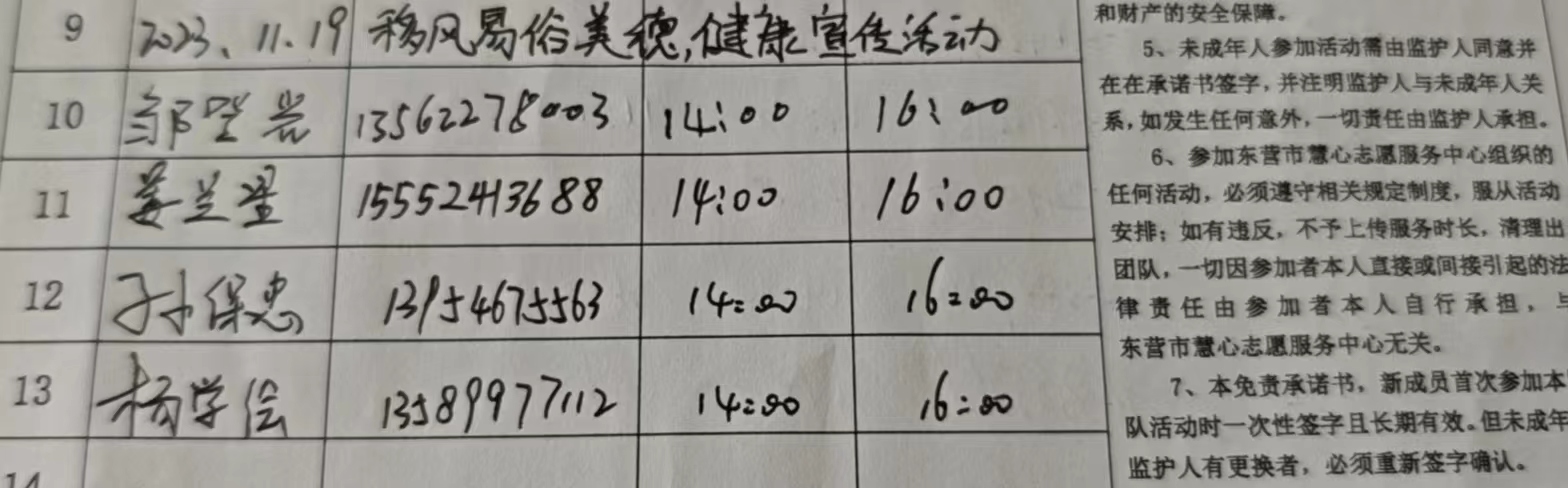 9 2023、11.19 移风易俗美德,健康宣传活动
10 13562278003 14:00 16:00
11 姜兰星 15552413688 14:00 16:00
12 孙保忠 13954675563 14:00 16:00
13 杨学绘 13589977112 14:00 16:00
14
和财产的安全保障。
5、未成年人参加活动需由监护人同意并
在在承诺书签字,并注明监护人与未成年人关
系,如发生任何意外,一切责任由监护人承担。
6、参加东营市慧心志愿服务中心组织的
任何活动,必须遵守相关规定制度,服从活动
安排;如有违反,不予上传服务时长,清理出
团队,一切因参加者本人直接或间接引起的法
律责任由参加者本人自行承担,与
东营市慧心志愿服务中心无关。
7、本免责承诺书,新成员首次参加本
队活动时一次性签字且长期有效。但未成年
监护人有更换者,必须重新签字确认。